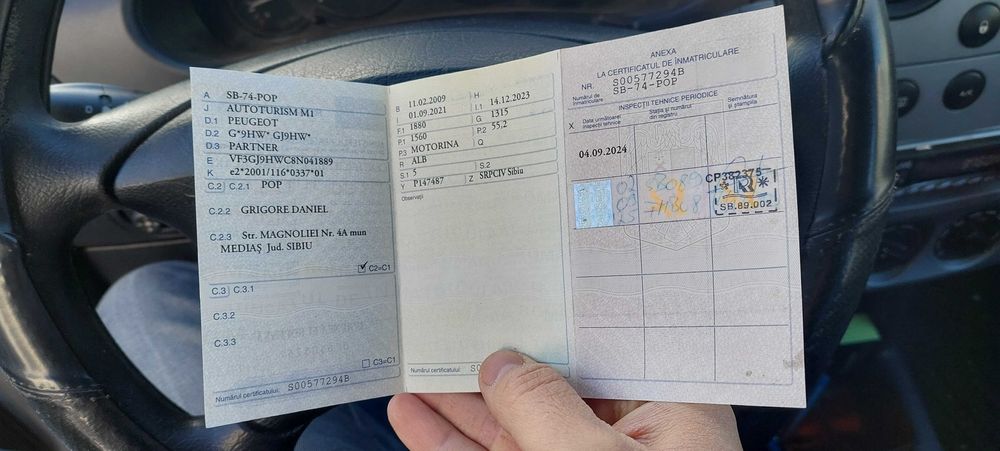 A SB-74-POP
J AUTOTURISM M1
D.1 PEUGEOT
D.2 G*9HW* GJ9HW*
D.3 PARTNER
E VF3GJ9HWC8N041889
K e2*2001/116*0337*01
C.2 C.2.1 POP
C.2.2 GRIGORE DANIEL
C.2.3 Str. MAGNOLIEI Nr. 4A mun
MEDIAȘ Jud. SIBIU
C2=C1
C.3 C.3.1
C.3.2
C.3.3
C3=C1
Numărul certificatului: S00577294B
B 11.02.2009 H
I 01.09.2021 I.1 14.12.2023
F.1 1880 G 1315
P.1 1560 P.2 55.2
P.3 MOTORINA Q
R ALB
S.1 5 S.2
Y P147487 Z SRPCIV Sibiu
Observații
Numărul certificatului:
ANEXA
LA CERTIFICATUL DE ÎNMATRICULARE
NR. S00577294B
Numărul de înmatriculare: SB-74-POP
INSPECȚII TEHNICE PERIODICE
X Data următoarei inspecții tehnice
Stația și numărul din registru
Semnătura și ștampila
04.09.2024
CP382375
* R *
SB.89.002